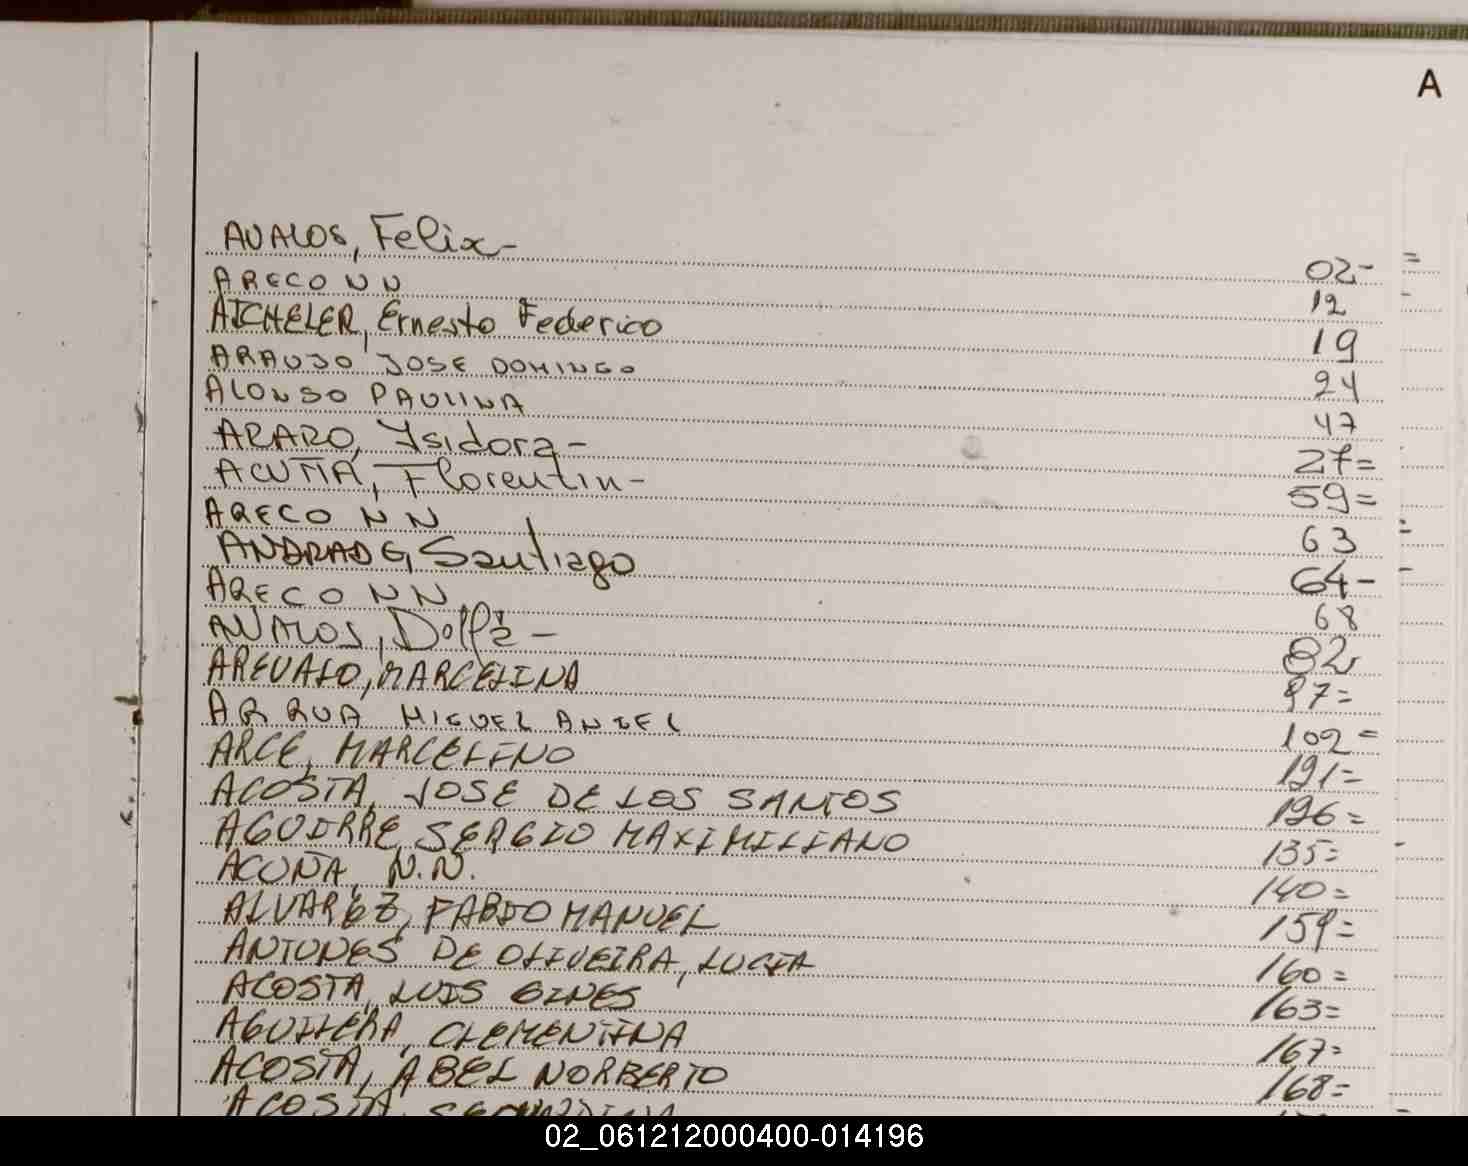 A
AVALOS, Felix- 02-
ARECO N N 12
AICHELER, Ernesto Federico 19
ARAUJO JOSE DOMINGO 24
ALONSO PAULINA 47
ARARO, Isidora- 27=
ACUÑA, Florentin- 59=
ARECO N N 63
ANDRADE, Santiago 64-
ARECO N N 68
AVALOS, - 82
AREVALO, MARCELINA 97=
ARRUA MIGUEL ANGEL 102=
ARCE, MARCELINO 121=
ACOSTA, JOSE DE LOS SANTOS 126=
AGUIRRE, SERGIO MAXIMILIANO 135=
ACUÑA, N.N. 140=
ALVAREZ, FABIO MANUEL 159=
ANTUNES DE OLIVEIRA, LUCIA 160=
ACOSTA, LUIS GINES 163=
AGUILERA, CLEMENTINA 167=
ACOSTA, ABEL NORBERTO 168=
ACOSTA,
02_061212000400-014196